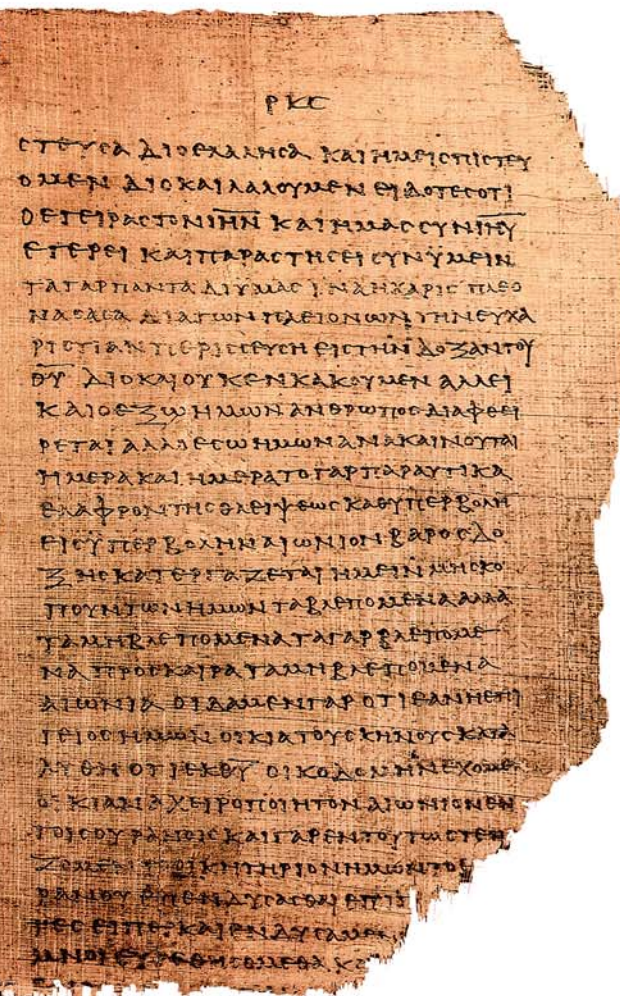 ΡΚϹ
ϹΤΕΥϹΑ ΔΙΟ ΕΛΑΛΗϹΑ ΚΑΙ ΗΜΕΙϹ ΠΙϹΤΕΥ
ΟΜΕΝ ΔΙΟ ΚΑΙ ΛΑΛΟΥΜΕΝ ΕΙΔΟΤΕϹ ΟΤΙ
Ο ΕΓΕΙΡΑϹ ΤΟΝ ΙΗΝ ΚΑΙ ΗΜΑϹ ϹΥΝ ΙΗΥ
ΕΓΕΡΕΙ ΚΑΙ ΠΑΡΑϹΤΗϹΕΙ ϹΥΝ ΫΜΕΙΝ
ΤΑ ΓΑΡ ΠΑΝΤΑ ΔΙ ΥΜΑϹ ΙΝΑ Η ΧΑΡΙϹ ΠΛΕΟ
ΝΑϹΑϹΑ ΔΙΑ ΤΩΝ ΠΛΕΙΟΝΩΝ ΤΗΝ ΕΥΧΑ
ΡΙϹΤΙΑΝ ΠΕΡΙϹϹΕΥϹΗ ΕΙϹ ΤΗΝ ΔΟΞΑΝ ΤΟΥ
ΘΥ ΔΙΟ ΚΑΙ ΟΥΚ ΕΝΚΑΚΟΥΜΕΝ ΑΛΛ ΕΙ
ΚΑΙ Ο ΕΞΩ ΗΜΩΝ ΑΝΘΡΩΠΟϹ ΔΙΑΦΘΕΙ
ΡΕΤΑΙ ΑΛΛ Ο ΕϹΩ ΗΜΩΝ ΑΝΑΚΑΙΝΟΥΤΑΙ
ΗΜΕΡΑ ΚΑΙ ΗΜΕΡΑ ΤΟ ΓΑΡ ΠΑΡΑΥΤΙΚΑ
ΕΛΑΦΡΟΝ ΤΗϹ ΘΛΕΙΨΕΩϹ ΚΑΘ ΥΠΕΡΒΟΛΗ
ΕΙϹ ΫΠΕΡΒΟΛΗΝ ΑΙΩΝΙΟΝ ΒΑΡΟϹ ΔΟ
ΞΗϹ ΚΑΤΕΡΓΑΖΕΤΑΙ ΗΜΕΙΝ ΜΗ ϹΚΟ
ΠΟΥΝΤΩΝ ΗΜΩΝ ΤΑ ΒΛΕΠΟΜΕΝΑ ΑΛΛΑ
ΤΑ ΜΗ ΒΛΕΠΟΜΕΝΑ ΤΑ ΓΑΡ ΒΛΕΠΟΜΕ
ΝΑ ΠΡΟϹΚΑΙΡΑ ΤΑ ΜΗ ΒΛΕΠΟΜΕΝΑ
ΑΙΩΝΙΑ ΟΙΔΑΜΕΝ ΓΑΡ ΟΤΙ ΕΑΝ Η ΕΠΙ
ΓΕΙΟϹ ΗΜΩΝ ΟΙΚΙΑ ΤΟΥ ϹΚΗΝΟΥϹ ΚΑΤΑ
ΛΥΘΗ ΟΤΙ ΕΚ ΘΥ ΟΙΚΟΔΟΜΗΝ ΕΧΟΜΕ
ΟΙΚΙΑΝ ΑΧΕΙΡΟΠΟΙΗΤΟΝ ΑΙΩΝΙΟΝ ΕΝ
ΤΟΙϹ ΟΥΡΑΝΟΙϹ ΚΑΙ ΓΑΡ ΕΝ ΤΟΥΤΩ ϹΤΕΝ
ΖΟΜΕΝ ΤΟ ΟΙΚΗΤΗΡΙΟΝ ΗΜΩΝ ΤΟ
ΡΑΝΟΥ ΕΠΕΝΔΥϹΑϹΘΑΙ ΕΠΙΠ
ΤΕϹ ΕΙΠΕΡ ΚΑΙ ΕΝΔΥϹΑΜΕΝ
ΜΝΟΙ ΕΥΡΕΘΗϹΟΜΕΘΑ Κ